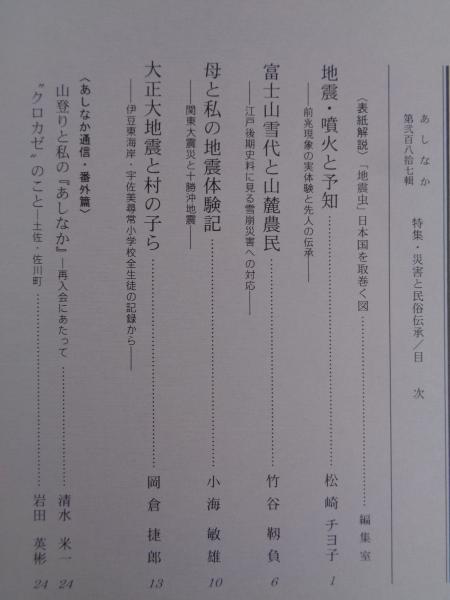 あしなか
第弐百八拾七輯
特集・災害と民俗伝承／目 次
〈表紙解説〉「地震虫」日本国を取巻く図…………編集室
地震・噴火と予知…………松崎チヨ子 1
――前兆現象の実体験と先人の伝承――
富士山雪代と山麓農民…………竹谷 靱負 6
――江戸後期史料に見る雪崩災害への対応――
母と私の地震体験記…………小海 敏雄 10
――関東大震災と十勝沖地震――
大正大地震と村の子ら…………岡倉 捷郎 13
――伊豆東海岸・宇佐美尋常小学校全生徒の記録から――
〈あしなか通信・番外篇〉
山登りと私の『あしなか』―再入会にあたって…………清水 米一 24
〝クロカゼ〟のこと―土佐・佐川町…………岩田 英彬 24